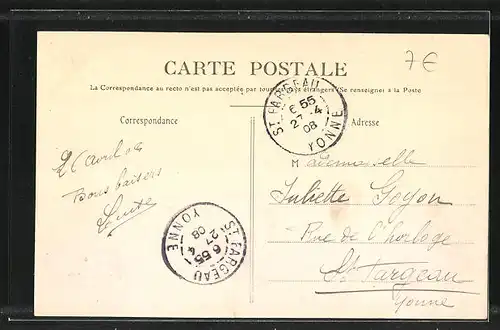 7€
CARTE POSTALE
La Correspondance au recto n'est pas acceptée par tous pays étrangers (Se renseigner à la Poste
Correspondance
Adresse
ST FARGEAU
6 55
27 - 4
08
YONNE
Bons baisers
Mademoiselle
Juliette Goyon
Rue de l'horloge
St Fargeau
Yonne
ST FARGEAU
6 55
27 4
08
YONNE